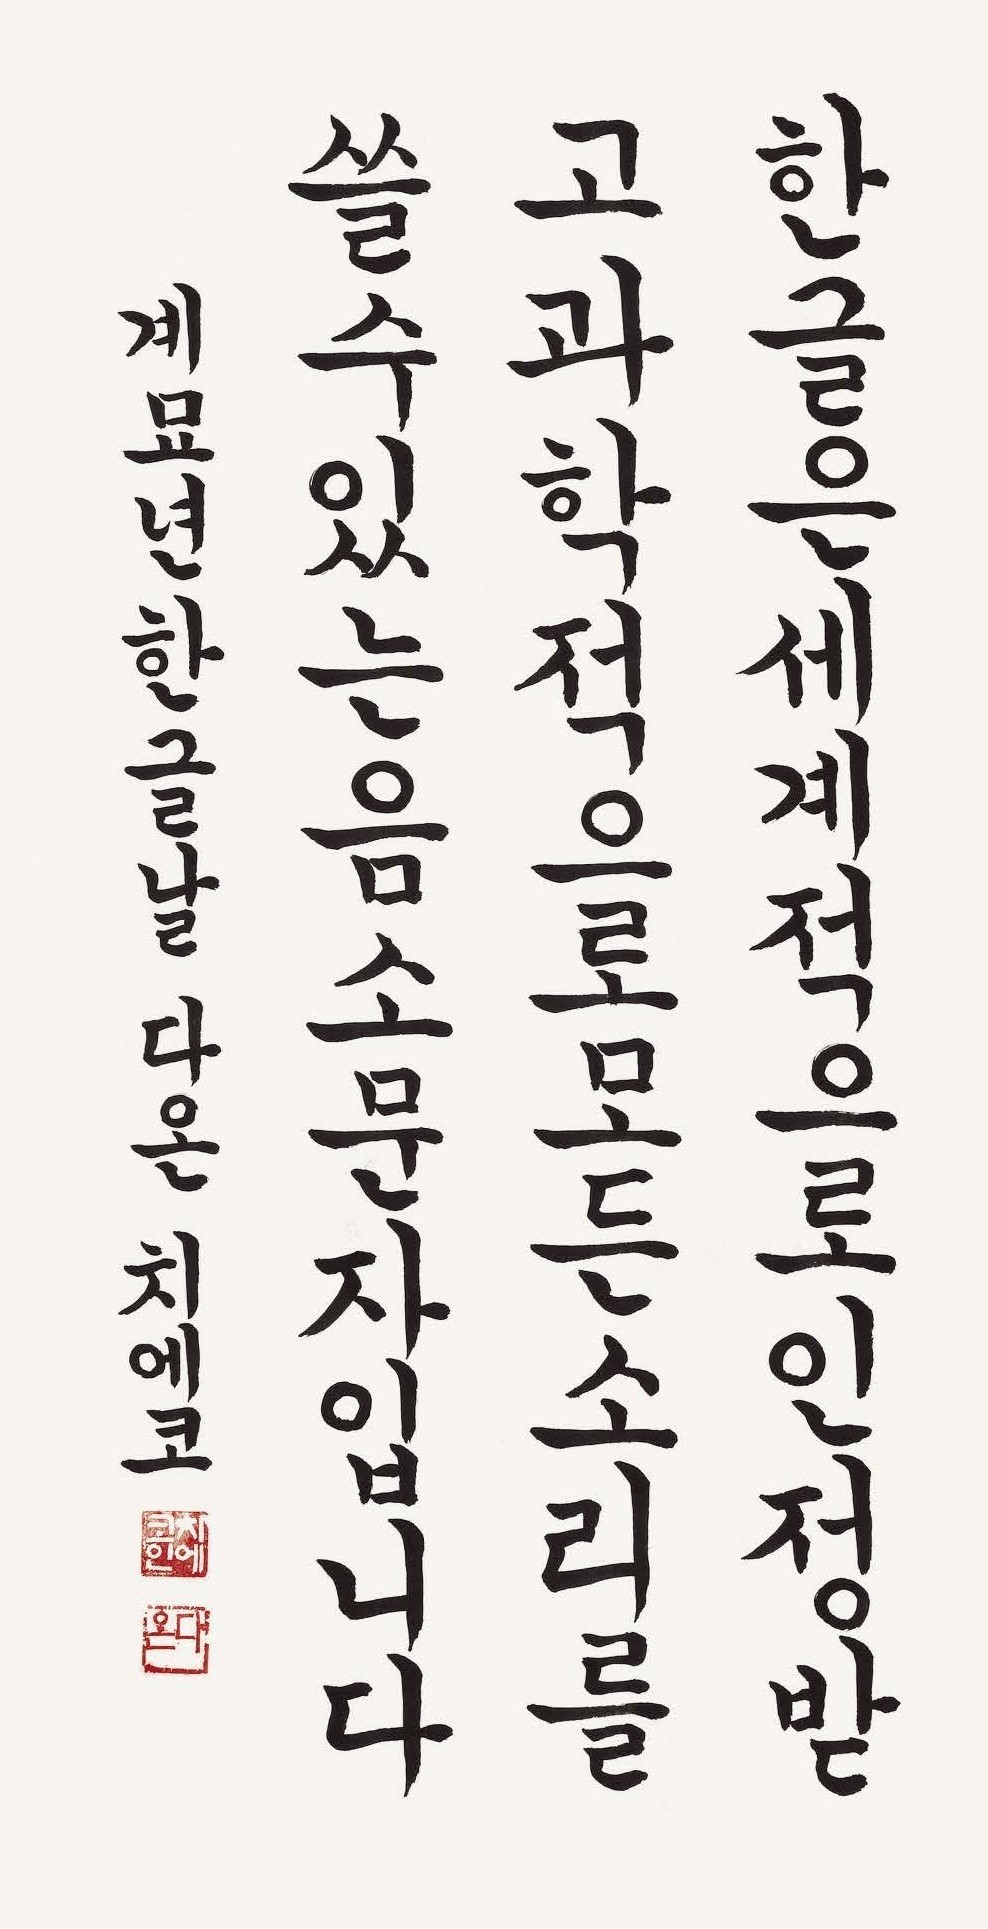 한글은세계적으로인정받
고과학적으로모든소리를
쓸수있는음소문자입니다
계묘년한글날 다온 치에코
치에
코인
다
온